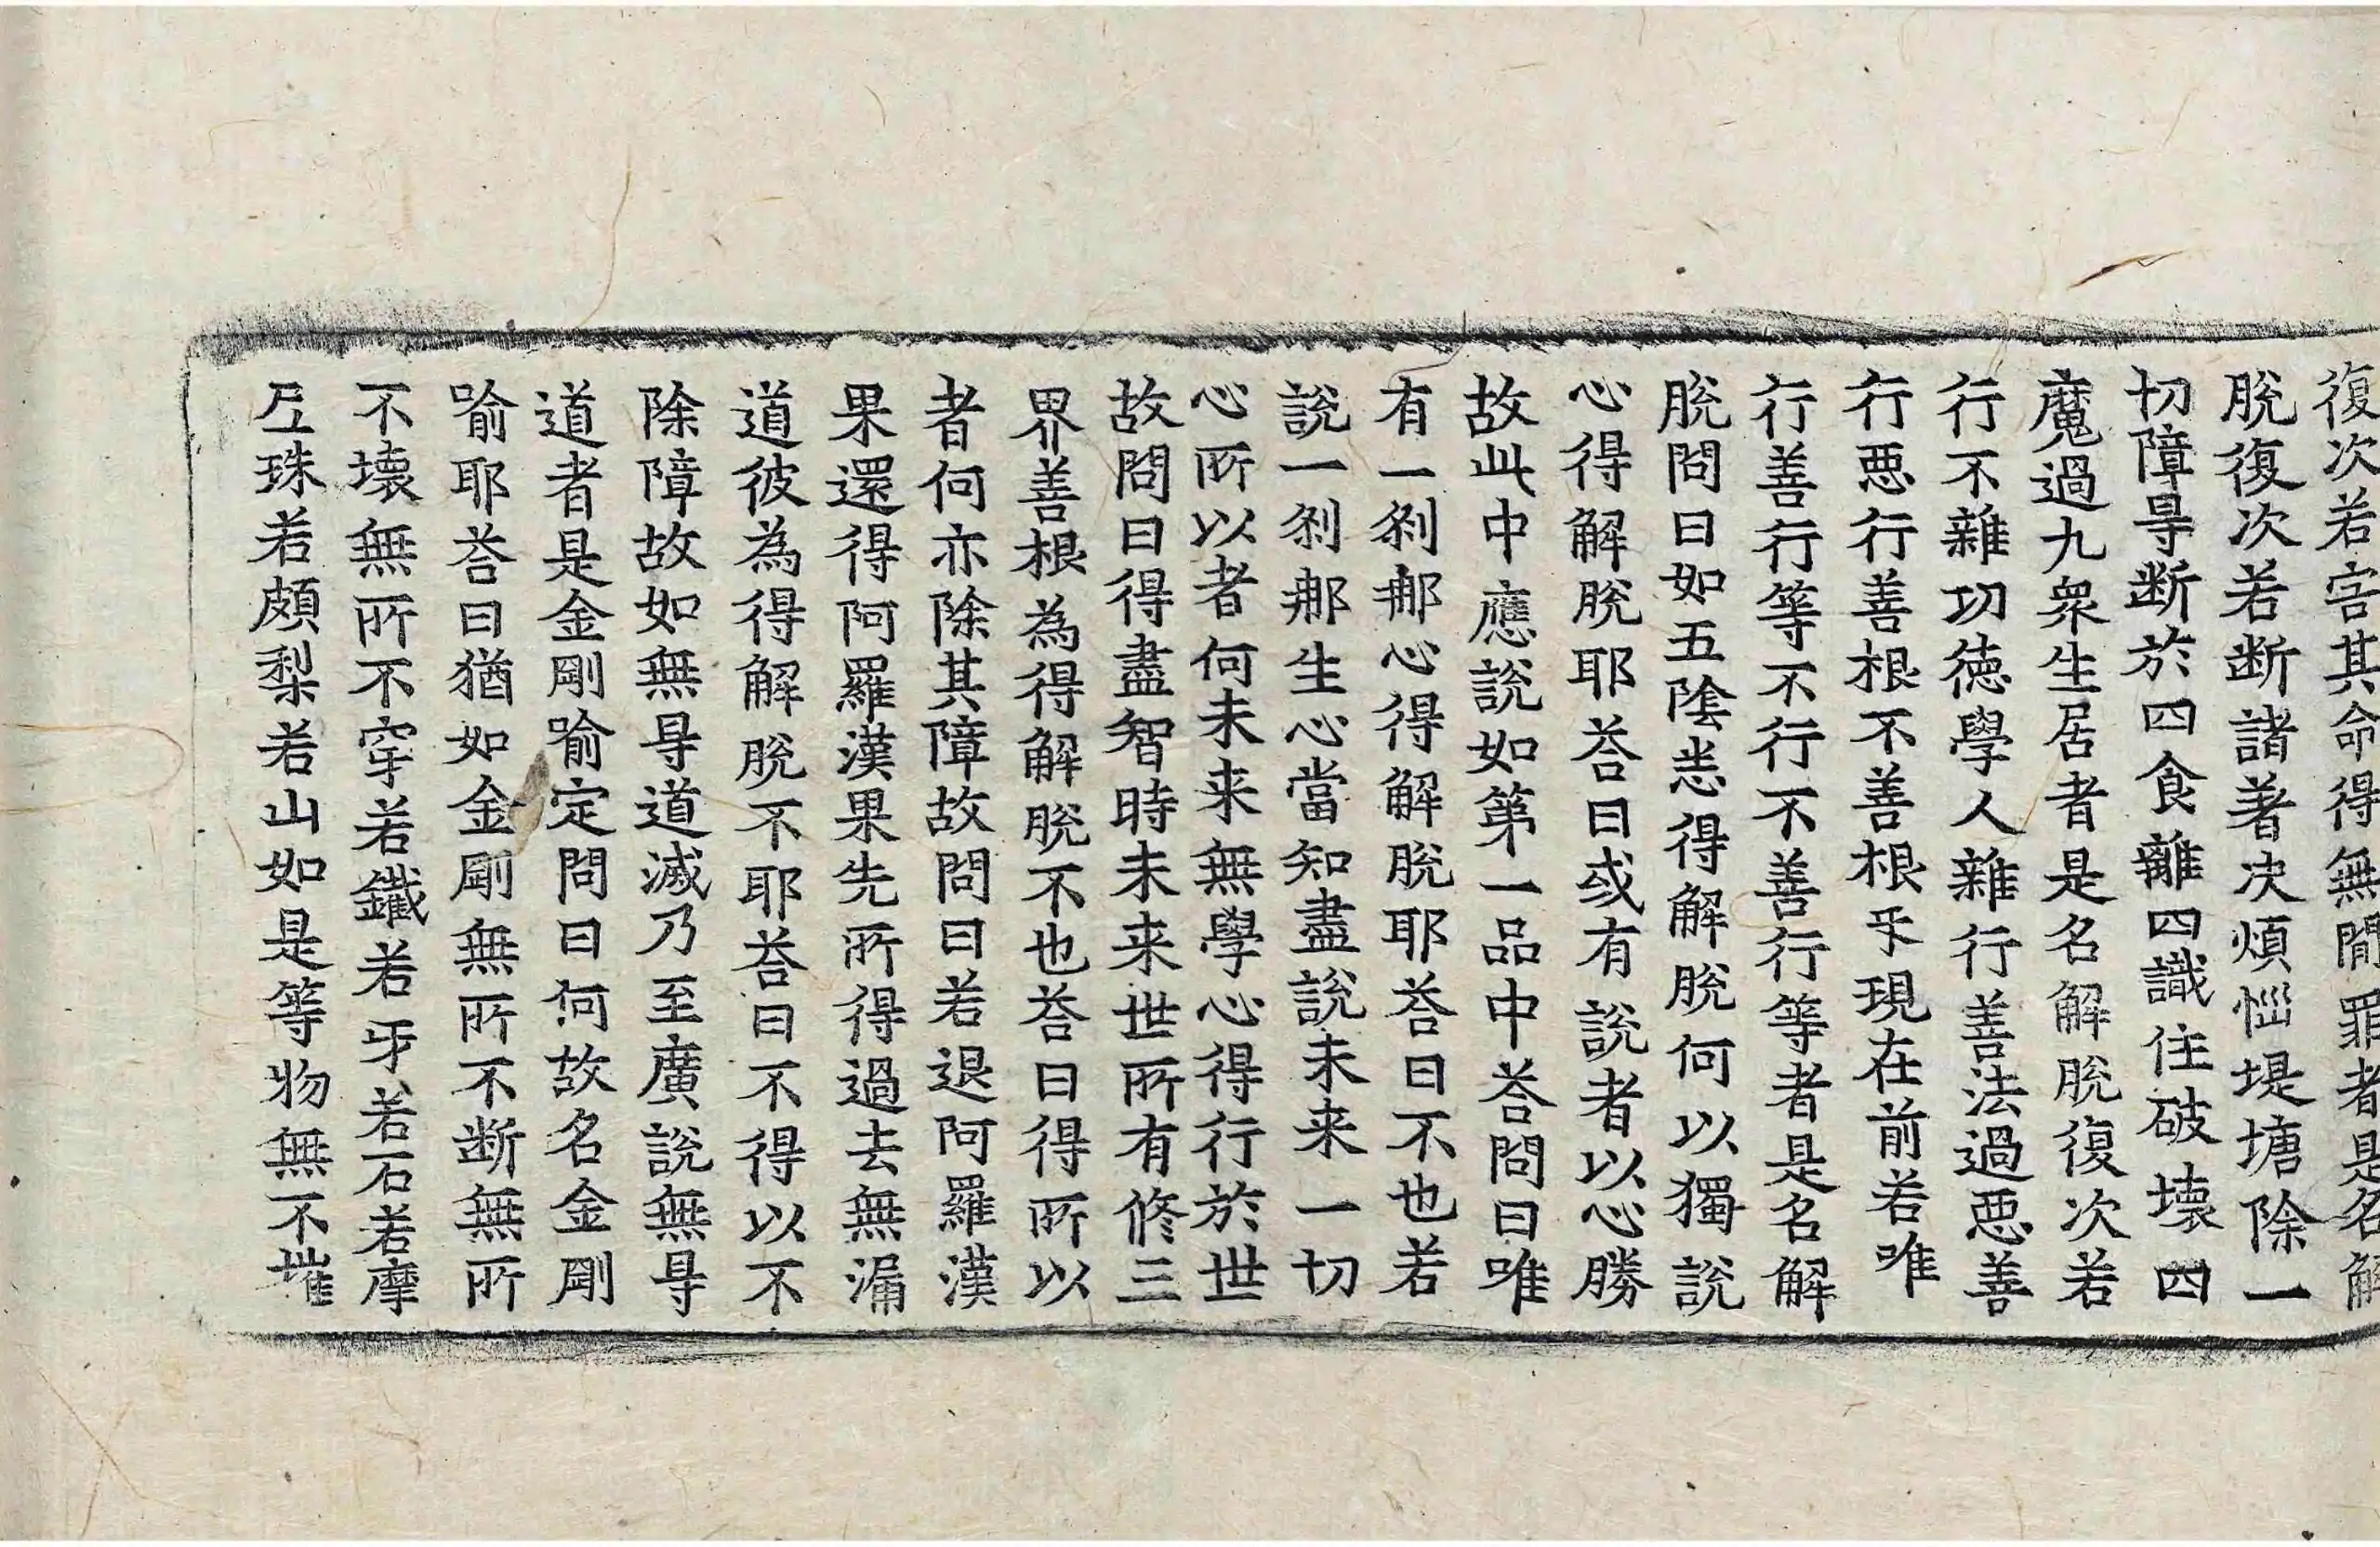 復次若害其命得無間罪者是名解
脫復次若断諸著决煩惱堤塘除一
切障㝵断於四食離四識住破壞四
魔過九衆生居者是名解脫復次若
行不雜功徳學人雜行善法過悪善
行悪行善根不善根乎現在前若唯
行善行等不行不善行等者是名解
脫問曰如五陰悉得解脫何以獨說
心得解脫耶荅曰或有說者以心勝
故此中應說如第一品中荅問曰唯
有一刹那心得解脫耶荅曰不也若
說一刹那生心當知盡說未来一切
心所以者何未来無學心得行於世
故問曰得盡智時未来世所有修三
界善根為得解脫不也荅曰得所以
者何亦除其障故問曰若退阿羅漢
果還得阿羅漢果先所得過去無漏
道彼為得解脫不耶荅曰不得以不
除障故如無㝵道滅乃至廣說無㝵
道者是金剛喻定問曰何故名金剛
喻耶荅曰猶如金剛無所不断無所
不壞無所不穿若鐵若牙若石若摩
𤤴珠若頗梨若山如是等物無不摧